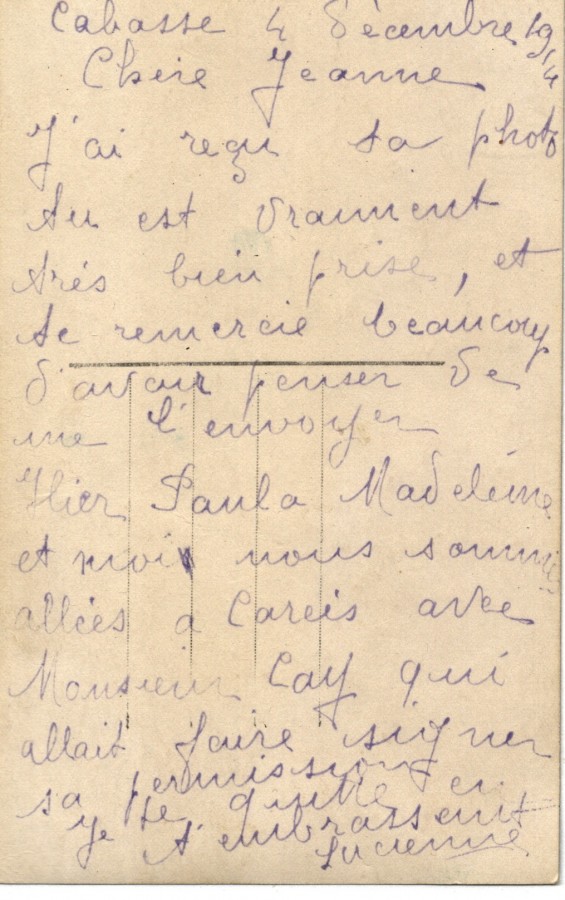 Cabasse 4 décembre 1914
Chere Jeanne
J'ai reçu ta photo
tu est vraiment
trés bien prise, et
te remercie beaucoup
d'avoir penser de
me l'envoyer
Hier Paula Madeleine
et moi nous sommes
allées a Carcès avec
Monsieur Cay qui
allait faire signer
sa permission
Je te quitte en
t'embrassent
Lucienne